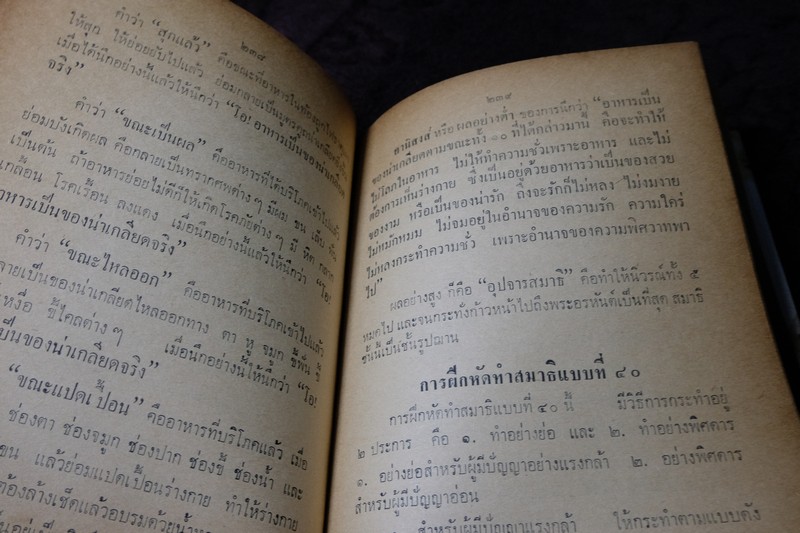 ๒๓๘
คำว่า “สุกแล้ว” คือขณะที่อาหารในท้อง
ให้สุก ให้ย่อยยับไปแล้ว ย่อมกลายเป็น
เมื่อได้นึกอย่างนี้แล้วให้นึกว่า “โอ! อาหารเป็นของน่าเกลียด
จริง”
คำว่า “ขณะเป็นผล” คืออาหารที่ได้บริโภคเข้าไปแล้ว
ย่อมบังเกิดผล คือกลายเป็นทรากศพต่างๆ มีผม ขน เล็บ ฟัน
เป็นต้น ถ้าอาหารย่อยไม่ดีก็ให้เกิดโรคภัยต่างๆ มี หิด กลาก
เกลื้อน โรคเรื้อน ลงแดง เมื่อนึกอย่างนี้แล้วให้นึกว่า “โอ!
อาหารเป็นของน่าเกลียดจริง”
คำว่า “ขณะไหลออก” คืออาหารที่บริโภคเข้าไปแล้ว
ลายเป็นของน่าเกลียดไหลออกทาง ตา หู จมูก ขี้ฟัน ขี้
เหงื่อ ขี้ไคลต่างๆ เมื่อนึกอย่างนี้ให้นึกว่า “โอ!
เป็นของน่าเกลียดจริง”
“ขณะแปดเปื้อน” คืออาหารที่บริโภคแล้ว เมื่อ
ช่องตา ช่องจมูก ช่องปาก ช่องขี้ ช่องน้ำ และ
ขน แล้วย่อมแปดเปื้อนร่างกาย ทำให้ร่างกาย
ต้องล้างเช็ดแล้วอบรมด้วยน้ำ
๒๓๙
อานิสงส์ หรือผลอย่างต่ำ ของการนึกว่า “อาหารเป็น
ของน่าเกลียดตามขณะทั้ง ๑๐ ที่ได้กล่าวมานี้ คือจะทำให้
ไม่โลภในอาหาร ไม่ให้ทำความชั่วเพราะอาหาร และไม่
ต้องการเห็นร่างกาย ซึ่งเป็นอยู่ด้วยอาหารว่าเป็นของสวย
ของงาม หรือเป็นของน่ารัก ถึงจะรักก็ไม่หลง ไม่งมงาย
ไม่หมกหมม ไม่จมอยู่ในอำนาจของความรัก ความใคร่
ไม่หลงกระทำความชั่ว เพราะอำนาจของความพิศวาทพา
ไป”
ผลอย่างสูง ก็คือ “อุปจารสมาธิ” คือทำให้นิวรณ์ทั้ง ๕
หมดไป และจนกระทั่งก้าวหน้าไปถึงพระอรหันต์เป็นที่สุด สมาธิ
ชั้นนี้เป็นชั้นรูปฌาน
การฝึกหัดทำสมาธิแบบที่ ๔๐
การฝึกหัดทำสมาธิแบบที่ ๔๐ นี้ มีวิธีการกระทำอยู่
๒ ประการ คือ ๑. ทำอย่างย่อ และ ๒. ทำอย่างพิศดาร
๑. อย่างย่อสำหรับผู้มีปัญญาอย่างแรงกล้า ๒. อย่างพิศดาร
สำหรับผู้มีปัญญาอ่อน
สำหรับผู้มีปัญญาแรงกล้า ให้กระทำตามแบบดัง